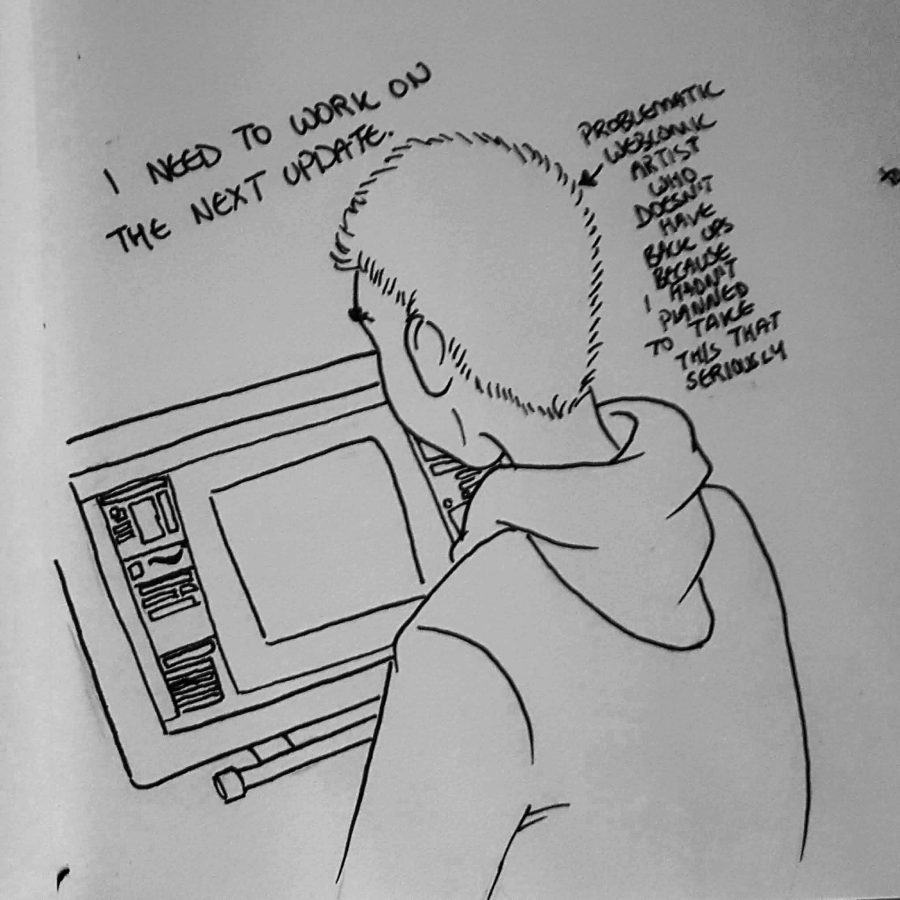 I NEED TO WORK ON
THE NEXT UPDATE.
PROBLEMATIC
WEBCOMIC
ARTIST
WHO
DOESN'T
HAVE
BACK UPS
BECAUSE
I HADN'T
PLANNED
TO TAKE
THIS THAT
SERIOUSLY